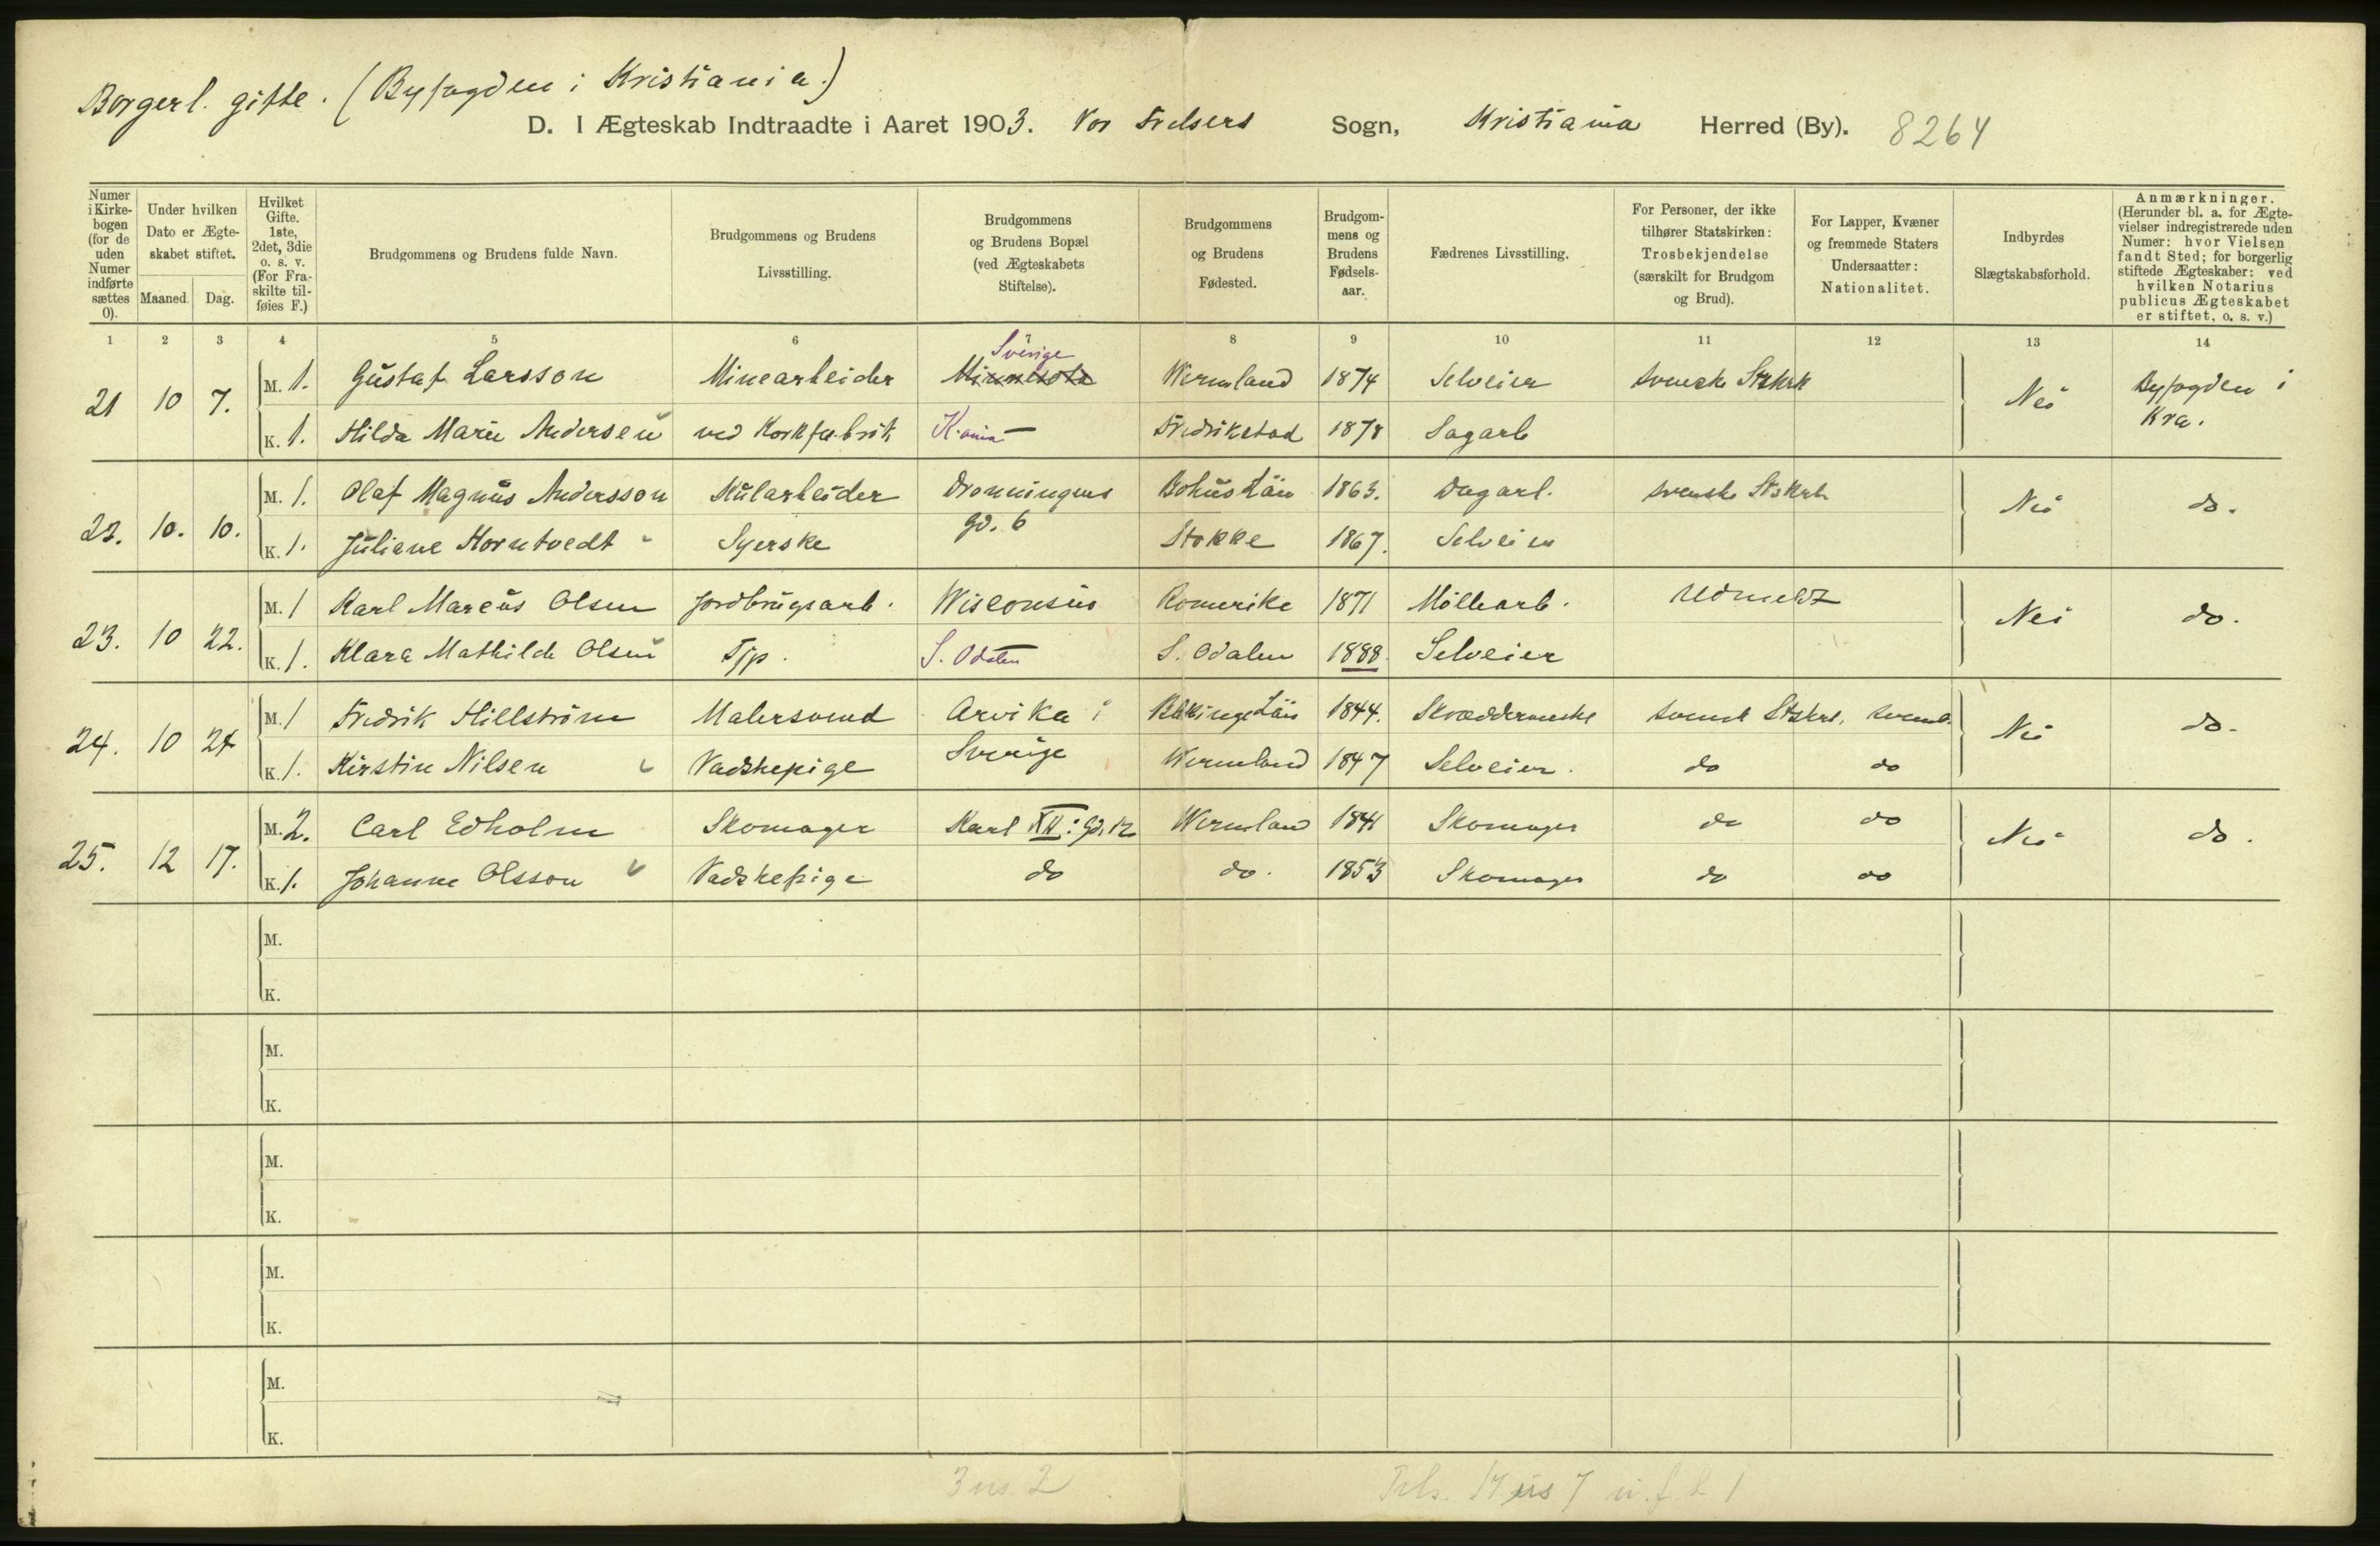 Borgerl. gifte. (Byfogden i Kristiania.)
D. I Ægteskab Indtraadte i Aaret 1903. Vor Frelsers Sogn, Kristiania Herred (By). 8264
Numer i Kirke-bogen (for de uden Numer indførte sættes 0).
Under hvilken Dato er Ægte-skabet stiftet.
Maaned. Dag.
Hvilket Gifte. 1ste, 2det, 3die o. s. v. (For Fra-skilte til-føies F.)
Brudgommens og Brudens fulde Navn.
Brudgommens og Brudens Livsstilling.
Brudgommens og Brudens Bopæl (ved Ægteskabets Stiftelse).
Brudgommens og Brudens Fødested.
Brudgom-mens og Brudens Fødsels-aar.
Fædrenes Livsstilling.
For Personer, der ikke tilhører Statskirken: Trosbekjendelse (særskilt for Brudgom og Brud).
For Lapper, Kvæner og fremmede Staters Undersaatter: Nationalitet.
Indbyrdes Slægtskabsforhold.
Anmærkninger. (Herunder bl. a. for Ægte-vielser indregistrerede uden Numer: hvor Vielsen fandt Sted; for borgerlig stiftede Ægteskaber: ved hvilken Notarius publicus Ægteskabet er stiftet, o. s. v.)
1 2 3 4 5 6 7 8 9 10 11 12 13 14
21 10 7. M. 1. Gustaf Larsson Minearbeider Minnesota Sverige Wermland 1874 Selveier svenske Statskirk Nei Byfogden i Kra.
K. 1. Hilda Marie Andersen ved Korkfabrik K.ania Fredrikstad 1878 Sagarb
22. 10. 10. M. 1. Olaf Magnus Andersson Kularbeider Dronningens gd. 6 Bohus Län 1863. Dagarb. svenske Stskrk Nei do.
K. 1. Juliane Horntvedt Syerske Stokke 1867. Selveier
23. 10 22. M. 1 Karl Marcus Olsen Jordbrugsarb. Wisconsin Romerike 1871 Møllearb. Udmeldt Nei do.
K. 1. Klara Mathilde Olsen Tjp. S. Odalen S. Odalen 1888. Selveier
24. 10 24 M. 1 Fredrik Hillström Malersvend Arvika i Sverige Blekinge Län 1844. Skræddermester svensk Stskrk. svensk. Nei do.
K. 1. Kirstin Nilsen Vadskepige Wermland 1847 Selveier. do do
25. 12 17. M. 2. Carl Edholm Skomager Karl XII: gd. 12 Wermland 1841 Skomager do do Nei do.
K. 1. Johanne Olsson Vadskepige do do. 1853 Skomager do do
M.
K.
M.
K.
M.
K.
M.
K.
M.
K.